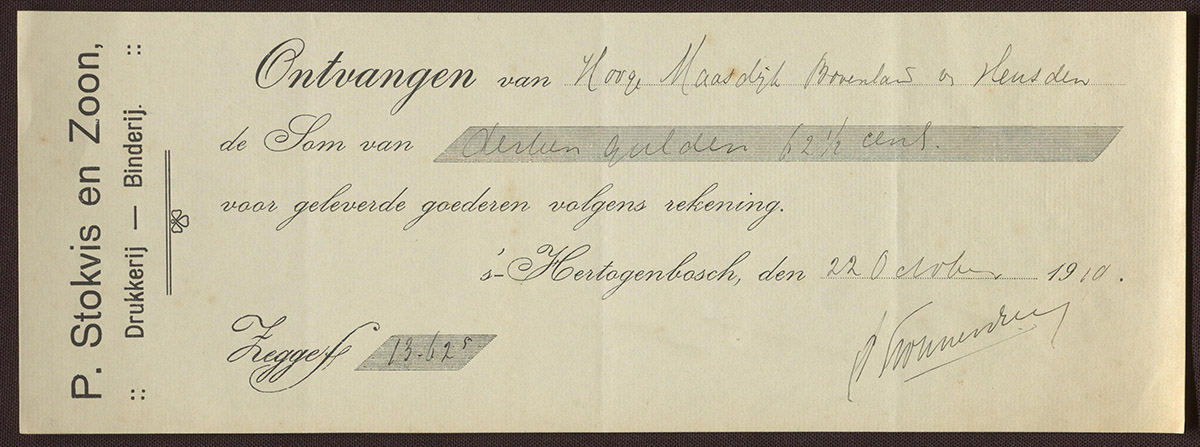 P. Stokvis en Zoon,
:: Drukkerij — Binderij. ::
Ontvangen van Hooge Maasdijk Bovenland v Heusden
de Som van dertien gulden 62 1/2 cent.
voor geleverde goederen volgens rekening.
's-Hertogenbosch, den 22 October 1910.
Zegge f 13.625